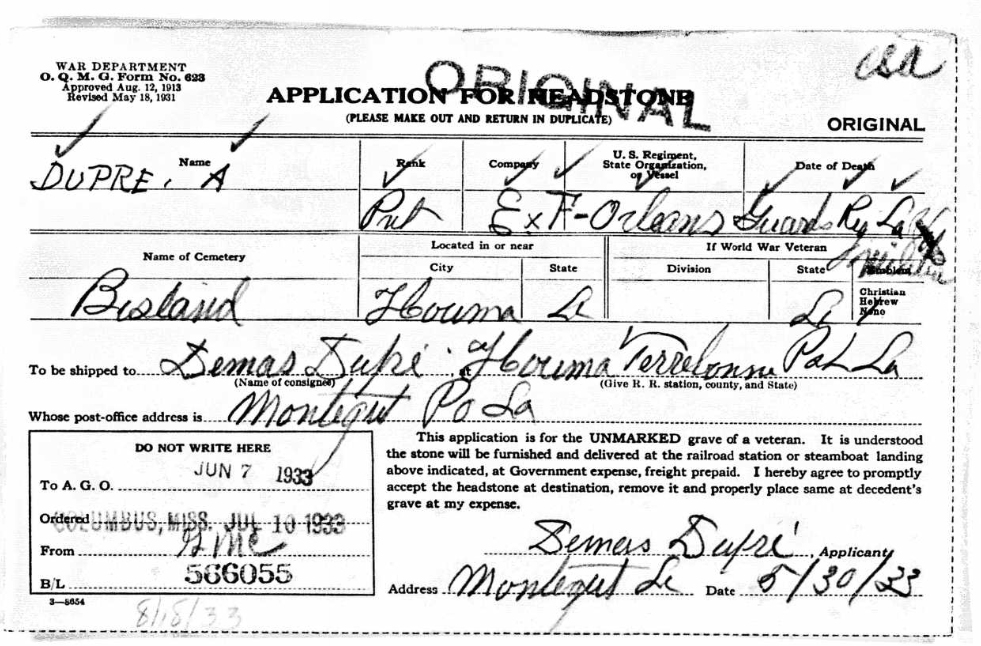 WAR DEPARTMENT
O. Q. M. G. Form No. 623
Approved Aug. 12, 1913
Revised May 18, 1931
csa
ORIGINAL
APPLICATION FOR HEADSTONE
(PLEASE MAKE OUT AND RETURN IN DUPLICATE)
ORIGINAL
Name Rank Company U. S. Regiment, State Organization, or Vessel Date of Death
DUPRE, A
Pvt E x F - Orleans Guards Rg La
Name of Cemetery Located in or near If World War Veteran
City State Division State Emblem
Bisland Houma La La
Christian
Hebrew
None
To be shipped to Demas Dupré at Houma Terrebonne La
(Name of consignee) (Give R. R. station, county, and State)
Whose post-office address is Montegut Po La
DO NOT WRITE HERE
JUN 7 1933
To A. G. O.
Ordered COLUMBUS, MISS. JUL 10 1933
From
B/L 566055
3—8654
8/18/33
This application is for the UNMARKED grave of a veteran. It is understood
the stone will be furnished and delivered at the railroad station or steamboat landing
above indicated, at Government expense, freight prepaid. I hereby agree to promptly
accept the headstone at destination, remove it and properly place same at decedent's
grave at my expense.
Demas Dupré, Applicant
Address Montegut La Date 5/30/33